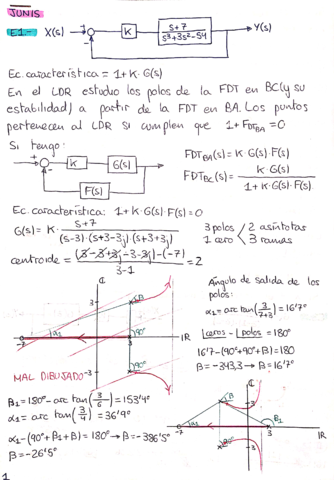 JUNIS
E1- X(s) K s+7 / s³+3s²-54 Y(s)
Ec. característica = 1+K·G(s)
En el LDR estudio los polos de la FDT en BC(y su
estabilidad) a partir de la FDT en BA. Los puntos
pertenecen al LDR si cumplen que 1+FDT_BA=0
Si tengo:
K G(s)
F(s)
FDT_BA(s) = K·G(s)·F(s)
FDT_BC(s) = K·G(s) / 1+K·G(s)·F(s)
Ec. característica: 1+K·G(s)·F(s)=0
G(s) = K· s+7 / (s-3)·(s+3-3j)·(s+3+3j)
3 polos 2 asíntotas
1 cero 3 ramas
centroide = (3-3+3j-3-3j)-(-7) / 3-1 = 2
Ángulo de salida de los
polos:
α₁ = arc tan(3/7+3) = 16'7°
∠ceros - ∠polos = 180°
16'7-(90°+90°+β)=180
β=-343,3 → β=16'7°
ℂ
3
β
-7 α₁ 3 90° IR
90°
MAL DIBUJADO
β₁=180°-arc tan(3/6)=153'4°
α₁= arc tan(3/4)=36'9°
α₁-(90°+β₁+β)=180° → β=-386'5°
β=-26'5°
ℂ
β 3
-7 α₁ β₁ 3 IR
90°
1